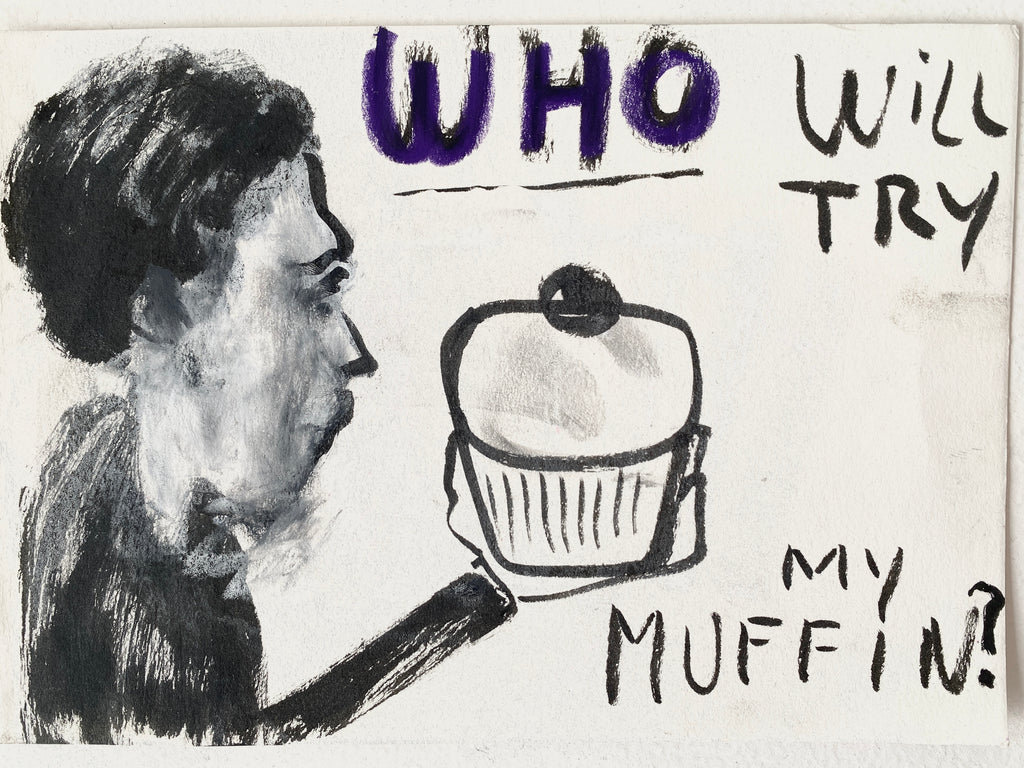 WHO
WiLL
TRY
MY
MUFFIN?